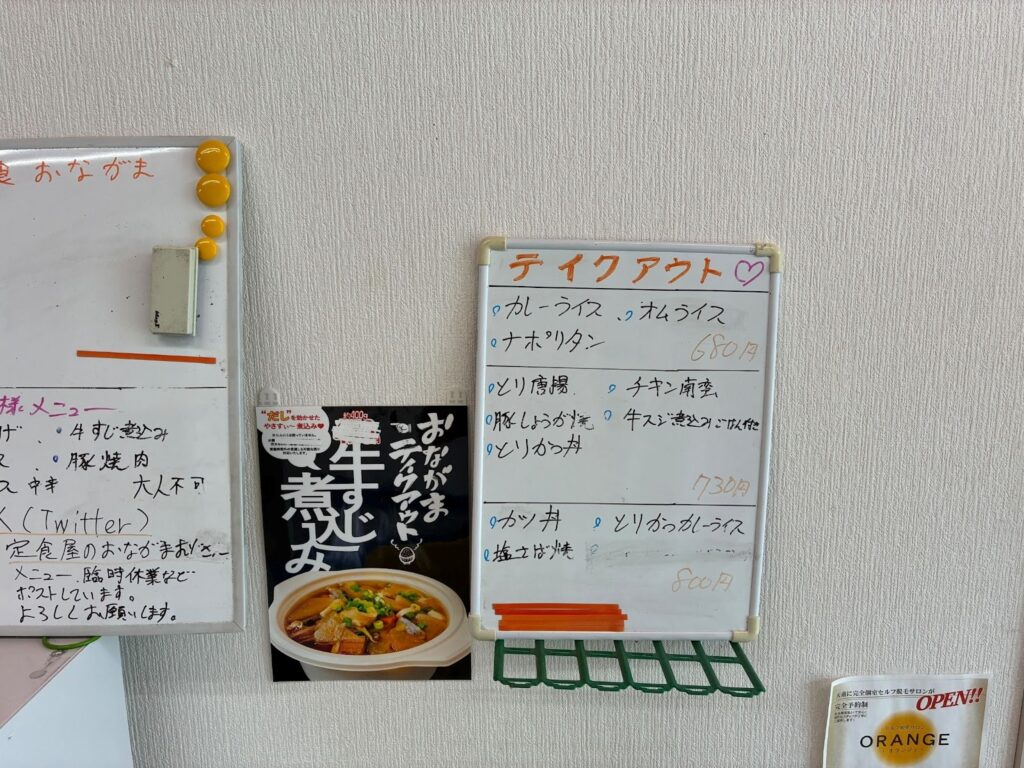 おながま
様メニュー
げ、・牛すじ煮込み
ス、・豚焼肉
ス 中辛 大人不可
X(Twitter)
定食屋のおながま
メニュー、臨時休業など
ポストしています。
よろしくお願いします。
"だし"を効かせた
やさすぃ〜煮込み♥
約400g
牛すじ
煮込み
おながま
テイクアウト
テイクアウト♡
・カレーライス ・オムライス
・ナポリタン 680円
・とり唐揚 ・チキン南蛮
・豚しょうが焼 ・牛スジ煮込みごはん付き
・とりかつ丼
730円
・カツ丼 ・とりかつカレーライス
・塩さば焼
800円
天童に完全個室セルフ脱毛サロンが
OPEN!!
完全予約制
セルフ脱毛サロン
ORANGE